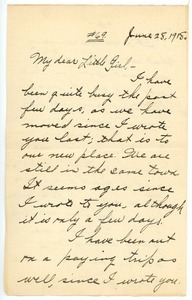 #69
June 28, 1918.
My dear Little Girl -
I have
been quite busy the past
few days, as we have
moved since I wrote
you last; that is to
our new place. We are
still in the same town.
It seems ages since
I wrote to you, although
it is only a few days.
I have been out
on a paying trip as
well, since I wrote you.